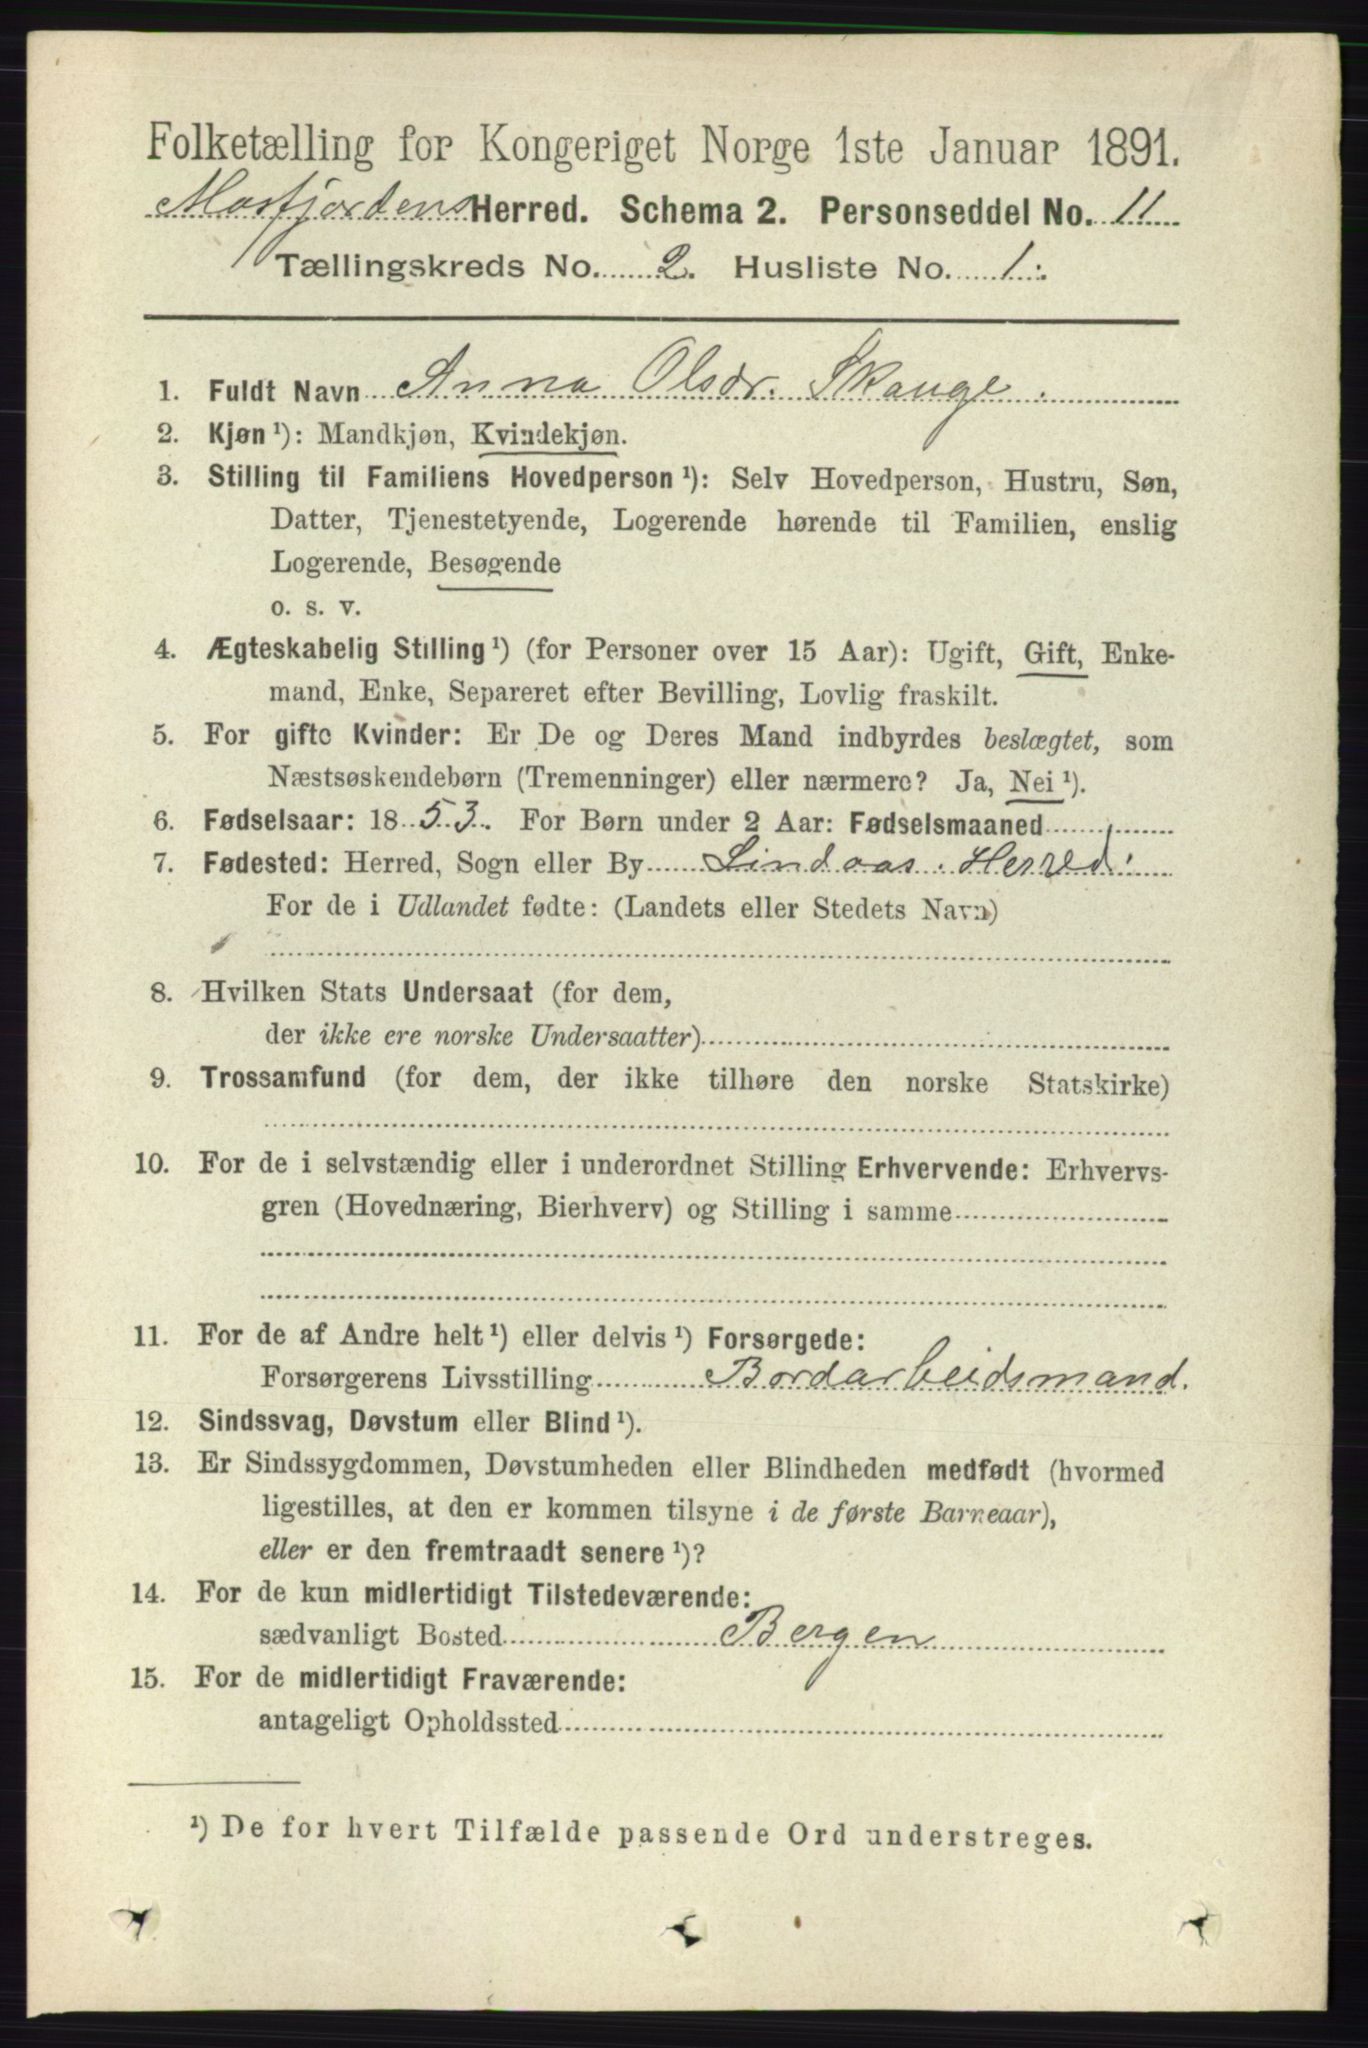 Folketælling for Kongeriget Norge 1ste Januar 1891.
Masfjordens Herred. Schema 2. Personseddel No. 11
Tællingskreds No. 2. Husliste No. 1.
1. Fuldt Navn Anna Olsdr. Skauge.
2. Kjøn ¹): Mandkjøn, Kvindekjøn.
3. Stilling til Familiens Hovedperson ¹): Selv Hovedperson, Hustru, Søn,
Datter, Tjenestetyende, Logerende hørende til Familien, enslig
Logerende, Besøgende
o. s. v.
4. Ægteskabelig Stilling ¹) (for Personer over 15 Aar): Ugift, Gift, Enke-
mand, Enke, Separeret efter Bevilling, Lovlig fraskilt.
5. For gifte Kvinder: Er De og Deres Mand indbyrdes beslægtet, som
Næstsøskendebørn (Tremenninger) eller nærmere? Ja, Nei ¹).
6. Fødselsaar: 1853. For Børn under 2 Aar: Fødselsmaaned
7. Fødested: Herred, Sogn eller By Lindaas Herred.
For de i Udlandet fødte: (Landets eller Stedets Navn)
8. Hvilken Stats Undersaat (for dem,
der ikke ere norske Undersaatter)
9. Trossamfund (for dem, der ikke tilhøre den norske Statskirke)
10. For de i selvstændig eller i underordnet Stilling Erhvervende: Erhvervs-
gren (Hovednæring, Bierhverv) og Stilling i samme
11. For de af Andre helt ¹) eller delvis ¹) Forsørgede:
Forsørgerens Livsstilling Bordarbeidsmand.
12. Sindssvag, Døvstum eller Blind ¹).
13. Er Sindssygdommen, Døvstumheden eller Blindheden medfødt (hvormed
ligestilles, at den er kommen tilsyne i de første Barneaar),
eller er den fremtraadt senere ¹)?
14. For de kun midlertidigt Tilstedeværende:
sædvanligt Bosted Bergen
15. For de midlertidigt Fraværende:
antageligt Opholdssted
¹) De for hvert Tilfælde passende Ord understreges.